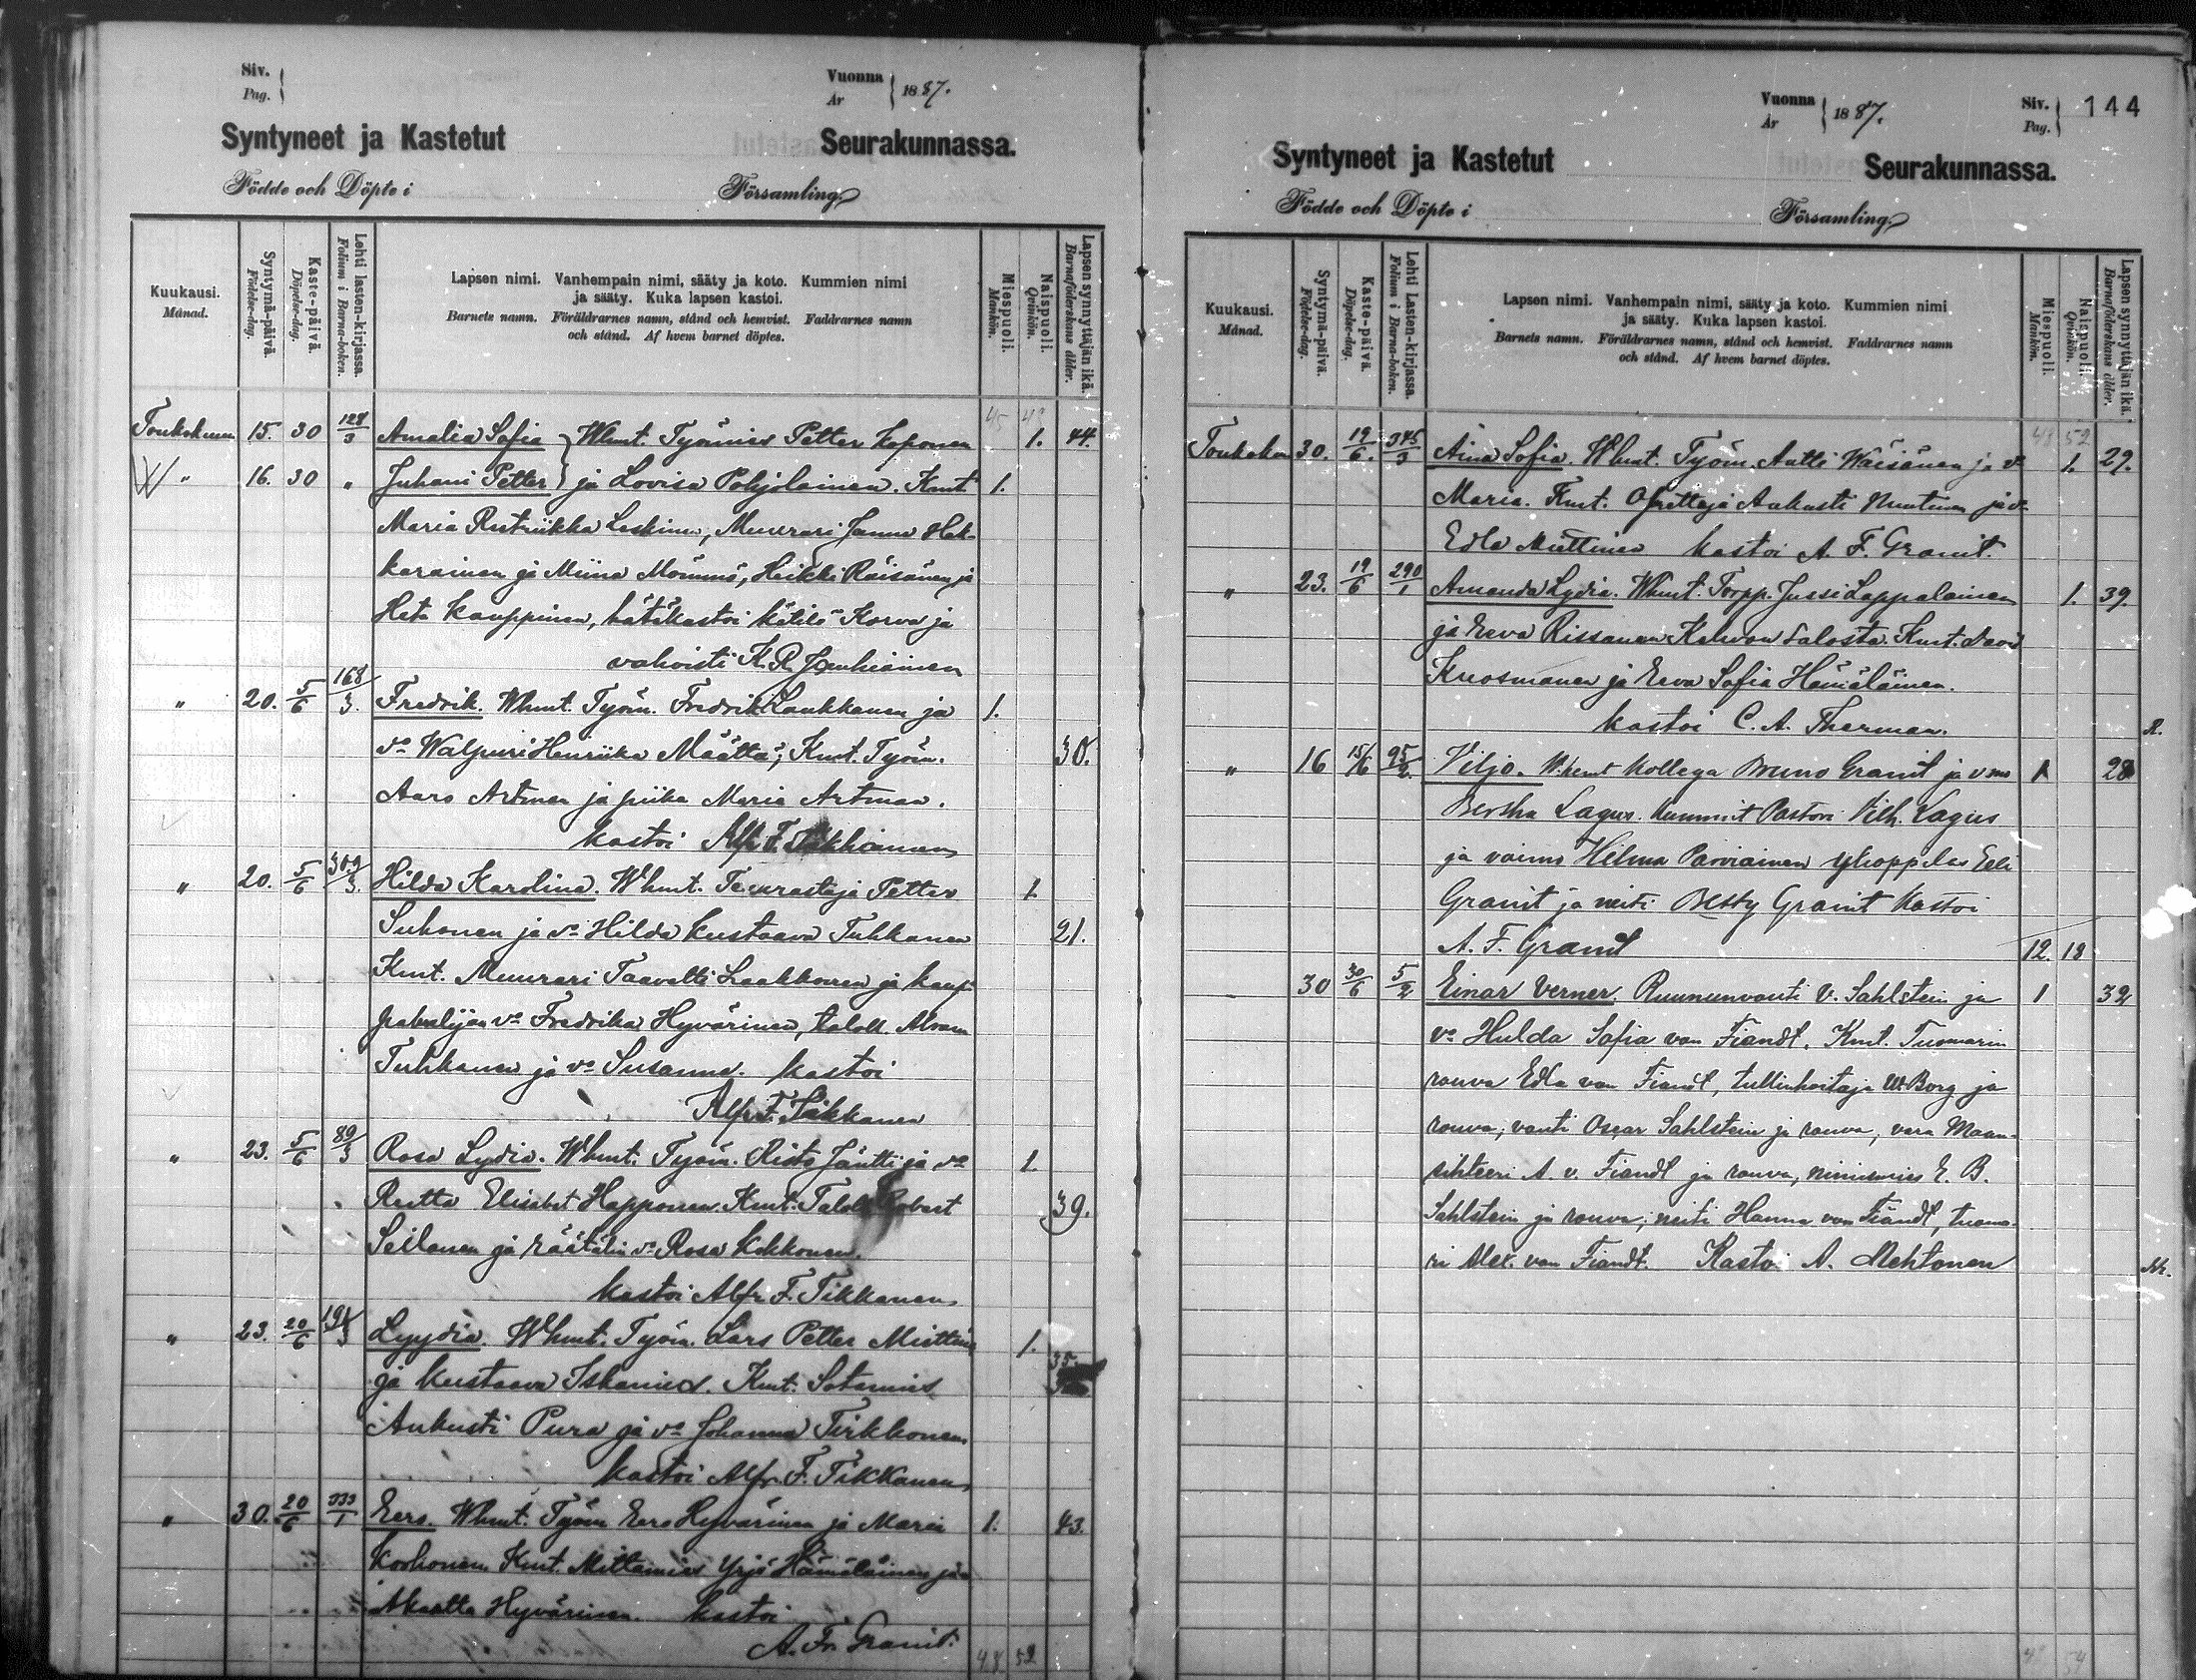 Siv.
Pag.
Vuonna
År
1887.
Syntyneet ja Kastetut Seurakunnassa.
Födde och Döpte i Församling
Kuukausi.
Månad.
Syntymä-päivä.
Födelse-dag.
Kaste-päivä.
Döpelse-dag.
Lehti lasten-kirjassa.
Folium i Barna-boken.
Lapsen nimi. Vanhempain nimi, sääty ja koto. Kummien nimi
ja sääty. Kuka lapsen kastoi.
Barnets namn. Föräldrarnes namn, stånd och hemvist. Faddrarnes namn
och stånd. Af hvem barnet döptes.
Miespuoli.
Mankön.
Naispuoli.
Qvinkön.
Lapsen synnyttäjän ikä.
Barnaföderskans ålder.
Toukokuun 15. 30 128/3 Amalia Sofia Whmt. Työmies Petter Koponen 1. 44.
" 16. 30 " Juhani Petter ja Lovisa Pohjolainen. Kmt. 1.
Maria Leskinen, Muurari Hak-
karainen ja Miina Mömmö, Heikki Räisänen ja
Heta Kauppinen, hätäkastoi kätilö Korva ja
vahvisti K. R.
" 20. 5/6 168/3. Fredrik. Whmt. Työm. Fredrik Laukkanen ja 1.
vo Walpuri Henriika Määttä; Kmt. Työm. 30.
Aaro Artman ja piika Maria Artman.
kastoi Alfr. F. Tikkanen
" 20. 5/6 309/3. Hilda Karolina. Whmt. Teurastaja Petter 1.
Suhonen ja vo Hilda Kustaava Tuhkanen 21.
Kmt. Muurari Taavetti Laakkonen ja kaup-
vo Fredrika Hyvärinen, taloll.
Tuhkanen ja vo Susanna. kastoi
Alfr. F. Tikkanen
" 23. 5/6 89/3 Rosa Lydia. Whmt. Työm. Risto Jäntti ja vo 1.
Reetta Elisabet Happonen. Kmt. Taloll. Robert 39.
Seilonen ja räätälin vo Rosa Kokkonen.
kastoi Alfr. F. Tikkanen
" 23. 20/6 Lyydia. Whmt. Työm. Lars Petter Miettinen 1.
ja Kustaava Kmt. Sotamies 35.
Aukusti Pura ja vo Johanna Tirkkonen
kastoi Alfr. F. Tikkanen
" 30. 20/6 333/1 Eero. Whmt. Työm. Eero Hyvärinen ja Maria 1. 43.
Korhonen. Kmt. Mittamies Yrjö Hämäläinen ja
Hyvärinen. kastoi
A. Fr. Granit.
48 52
Vuonna
År
1887.
Siv.
Pag.
144
Syntyneet ja Kastetut Seurakunnassa.
Födde och Döpte i Församling
Kuukausi.
Månad.
Syntymä-päivä.
Födelse-dag.
Kaste-päivä.
Döpelse-dag.
Lehti Lasten-kirjassa.
Folium i Barna-boken.
Lapsen nimi. Vanhempain nimi, sääty ja koto. Kummien nimi
ja sääty. Kuka lapsen kastoi.
Barnets namn. Föräldrarnes namn, stånd och hemvist. Faddrarnes namn
och stånd. Af hvem barnet döptes.
Miespuoli.
Mankön.
Naispuoli.
Qvinkön.
Lapsen synnyttäjän ikä.
Barnaföderskans ålder.
48 52
30. 19/6. 345/3 Aina Sofia. Whmt. Työm. Antti Wäisänen ja vo 1. 29.
Maria. Kmt. Opettaja Aukusti ja vo
Edla Miettinen kastoi A. F. Granit.
" 23. 19/6 290/1 Amanda Lydia. Whmt. Torpp. Jussi Lappalainen 1. 39.
ja Eeva Rissanen Salosta. Kmt.
Kuosmanen ja Eeva Sofia Hämäläinen.
kastoi C. A. Therman. R.
" 16 15/6 95/2. Viljo. Whemt Kollega Bruno Granit ja vmo 1 28
Bertha Lagus. Kummit Pastori Vilh. Lagus
ja vaimo Hilma Parviainen yliopplas Eeli
Granit ja neiti Betty Granit Kastoi
A. F. Granit 12. 18
30 30/6 5/2 Einar Verner. Ruununvouti V. Sahlstein ja 1 32
vo Hulda Sofia von Fiandt. Kmt. Tuomarin
rouva Edla von Fiandt, tullinhoitaja W. Borg ja
rouva, vouti Oscar Sahlstein ja rouva, vara Maan-
sihteeri A. v. Fiandt ja rouva, nimismies E. B.
Sahlstein ja rouva, neiti Hanna von Fiandt, tuoma-
ri Alex. von Fiandt. Kastoi A. Mehtonen